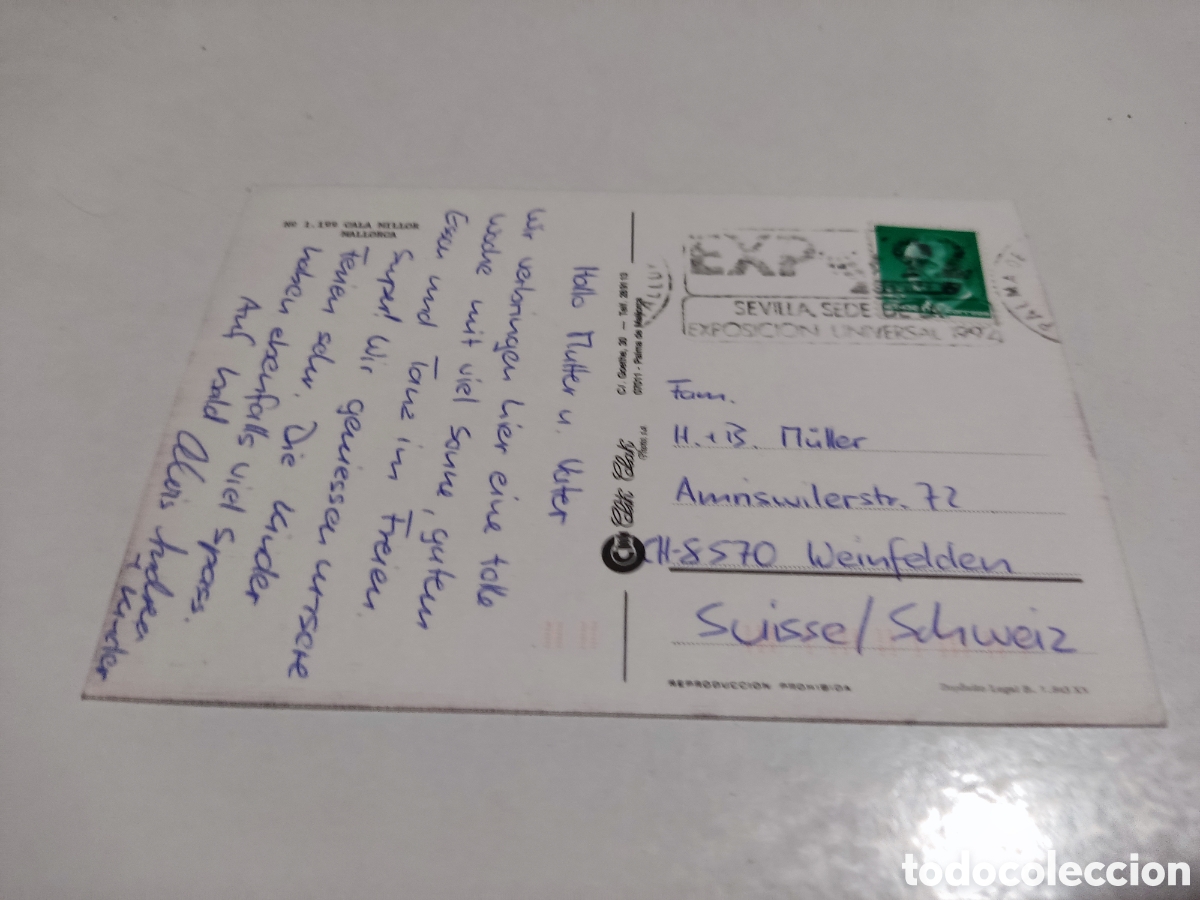 Nº 1.199 CALA MILLOR
MALLORCA
Hallo Mutter u. Vater
Wir verbringen hier eine tolle
Woche mit viel Sonne, gutem
Essen und Tanz im Freien.
Super! Wir geniessen unsere
Ferien sehr. Die Kinder
haben ebenfalls viel Spass.
Auf bald
Alois Andrea
+ Kinder
C/. Goethe, 30 — Tel.
07011 - Palma de Mallorca
Clik Clak
Photo
EXPO 92
SEVILLA, SEDE DE LA
EXPOSICION UNIVERSAL 1992
PALMA
Fam.
H. + B. Müller
Amriswilerstr. 72
CH-8570 Weinfelden
Suisse/Schweiz
REPRODUCCION PROHIBIDA
Depósito Legal B.
todocoleccion